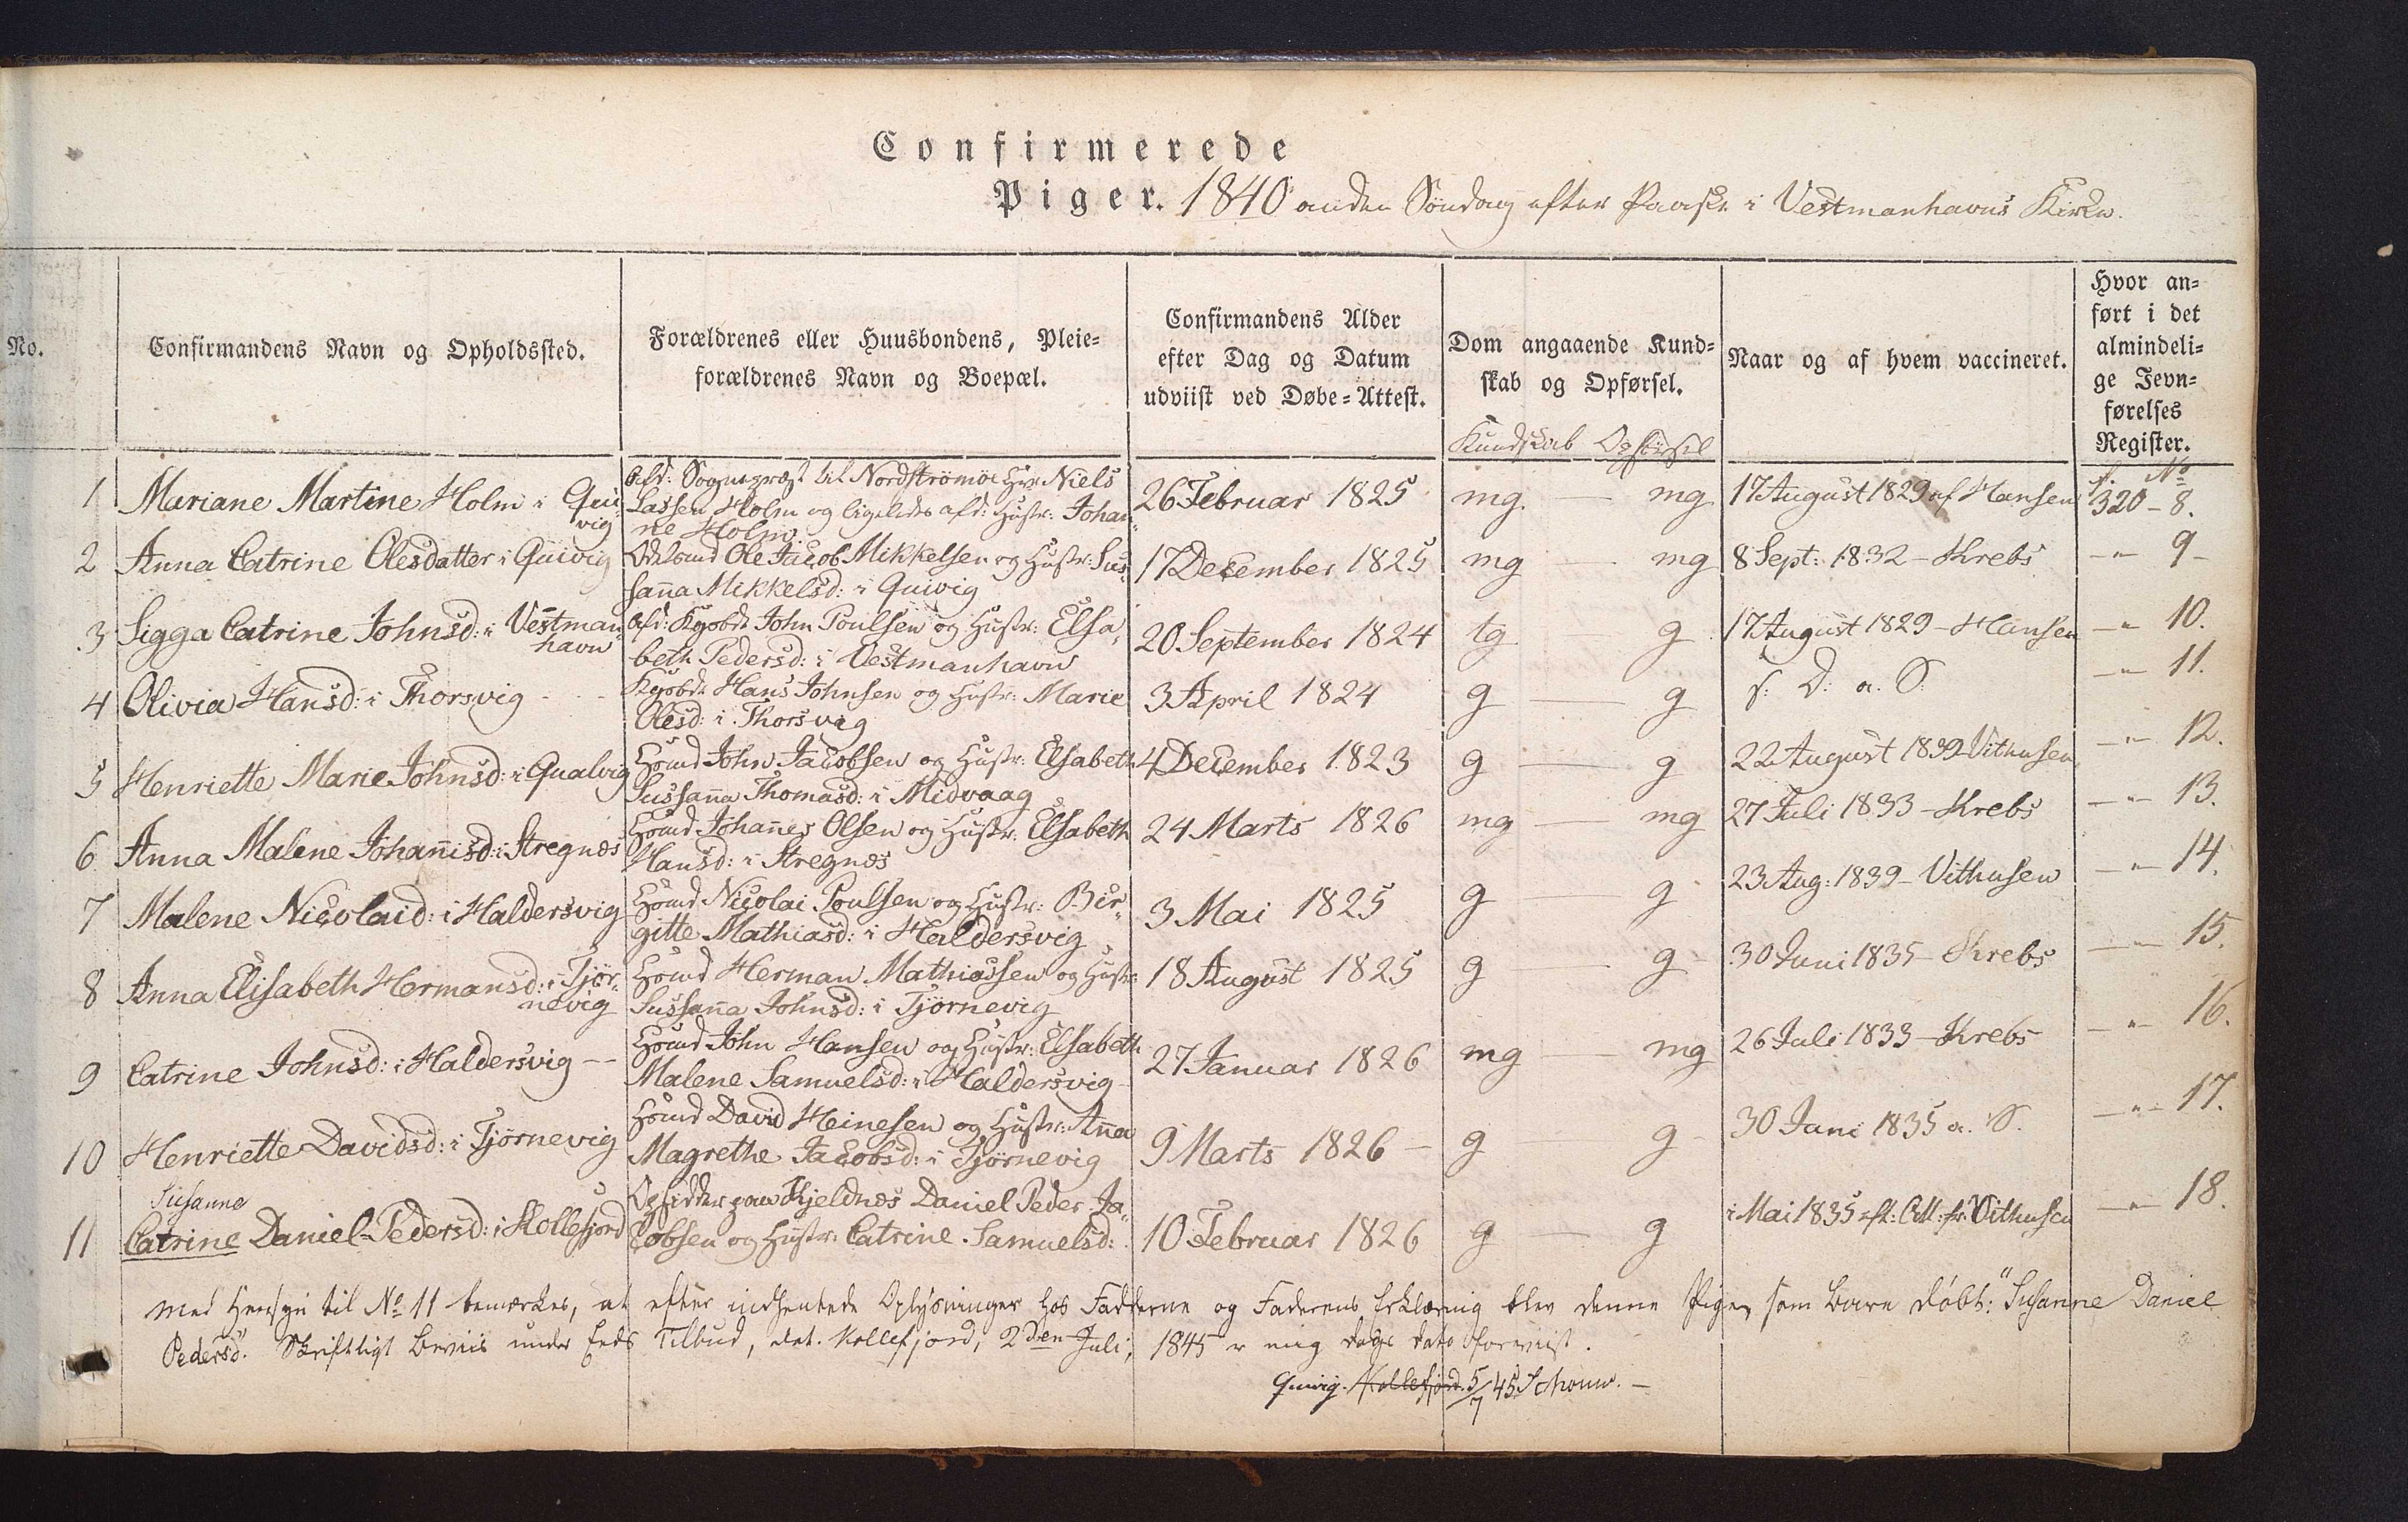 Confirmerede
Piger. 1840 anden Søndag efter Paaske i Vestmanhavns Kirke.
No.
Confirmandens Navn og Opholdssted.
Forældrenes eller Huusbondens, Pleie-
forældrenes Navn og Boepæl.
Confirmandens Alder
efter Dag og Datum
udviist ved Døbe-Attest.
Dom angaaende Kund-
skab og Opførsel.
Kundskab Opførsel
Naar og af hvem vaccineret.
Hvor an-
ført i det
almindeli-
ge Jevn-
førelses
Register.
f. No
1 Mariane Martine Holm i Qui-
vig
afd: Sognepræst til Nordstrømøe Hr. Niels
Lassen Holm og ligeledes afd: Hustr: Johan-
ne Holm.
26 Februar 1825 mg. — mg 17 August 1829 af Hansen 320 - 8.
2 Anna Catrine Olesdatter i Quivig
Odelsmd Ole Jacob Mikkelsen og Hustr: Sus-
sanna Mikkelsd: i Quivig
17 December 1825 mg — mg 8 Sept: 1832 - Krebs -"- 9 -
3 Sigga Catrine Johnsd: i Vestman-
havn
afd: Kgsbd. John Poulsen og Hustr: Elsa-
beth Pedersd: i Vestmanhavn
20 September 1824 tg g 17 August 1829 - Hansen -"- 10.
4 Olivia Hansd: i Thorsvig - - -
Kgsbd. Hans Johnsen og Hustr: Marie
Olesd: i Thorsvig
3 April 1824 g — g s: D: a. S. -"- 11.
5 Henriette Marie Johnsd: i Qualvig
Huusmd John Jacobsen og Hustr: Elsabeth
Sussanna Thomasd: i Midvaag
4 December 1823 g — g 22 August 1839 - Vithusen -"- 12.
6 Anna Malene Johannisd: i Stregnæs
Huusmd Johannes Olsen og Hustr: Elsabeth
Hansd: i Stregnæs
24 Marts 1826 mg — mg 27 Juli 1833 - Krebs -"- 13.
7 Malene Nicolaid: i Haldersvig
Huusmd Nicolai Poulsen og Hustr: Bir-
gitte Mathiasd: i Haldersvig
3 Mai 1825 g — g 23 Aug: 1839 - Vithusen -"- 14.
8 Anna Elisabeth Hermansd: i Tjør-
nevig
Huusmd Herman Mathiassen og Hustr:
Sussanna Johnsd: i Tjørnevig
18 August 1825 g — g - 30 Juni 1835 - Krebs -"- 15.
9 Catrine Johnsd: i Haldersvig - -
Huusmd John Hansen og Hustr: Elsabeth
Malene Samuelsd: i Haldersvig -
27 Januar 1826 mg — mg 26 Juli 1833 - Krebs -"- 16.
10 Henriette Davidsd: i Tjørnevig
Huusmd David Heinesen og Hustr: Anna
Magrethe Jacobsd: i Tjørnevig
9 Marts 1826 - g g - 30 Juni 1835 a. S. -"- 17.
Susanne
11 Catrine Daniel-Pedersd: i Kollefjord
Opsidder paa Kjeldnæs Daniel Peder Ja-
cobsen og Hustr: Catrine Samuelsd:
10 Februar 1826 g — g i Mai 1835 eft: Att: fr: Vithusen -"- 18.
Med Hensyn til No 11 bemærkes, at efter indhentede Oplysninger hos Fadderne og Faderens Erklæring blev denne Pige, som Barn døbt: "Susanne Daniel
Pedersd". Skriftligt Beviis under Eeds Tilbud, dat. Kollefjord, 2den Juli, 1845 er mig dags dato foreviist.
Quivig. Kollefjord. 5/7 45.